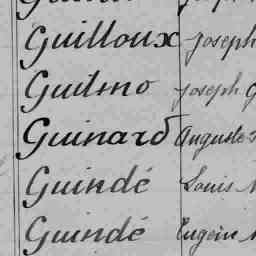 Guilloux Joseph
Guilmo Joseph G
Guinard Auguste
Guindé Louis
Guindé Eugène